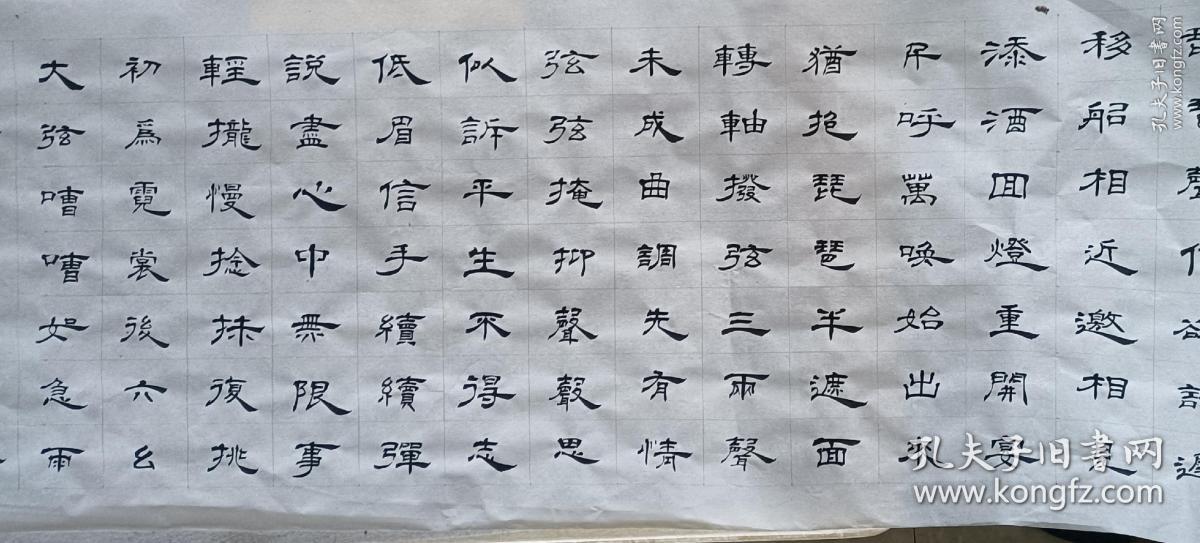 移船相近邀相見
添酒回燈重開宴
千呼萬喚始出來
猶抱琵琶半遮面
轉軸撥弦三兩聲
未成曲調先有情
弦弦掩抑聲聲思
似訴平生不得志
低眉信手續續彈
說盡心中無限事
輕攏慢捻抹復挑
初爲霓裳後六幺
大弦嘈嘈如急雨
孔夫子旧书网
www.kongfz.com
孔夫子旧书网
www.kongfz.com